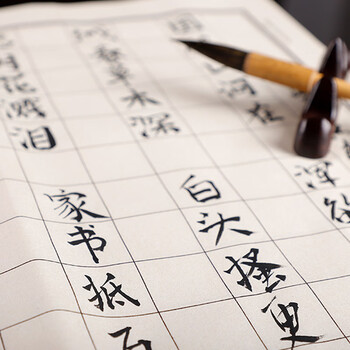 山河在
春草木深
花溅泪
浑欲
白头搔更
家书抵